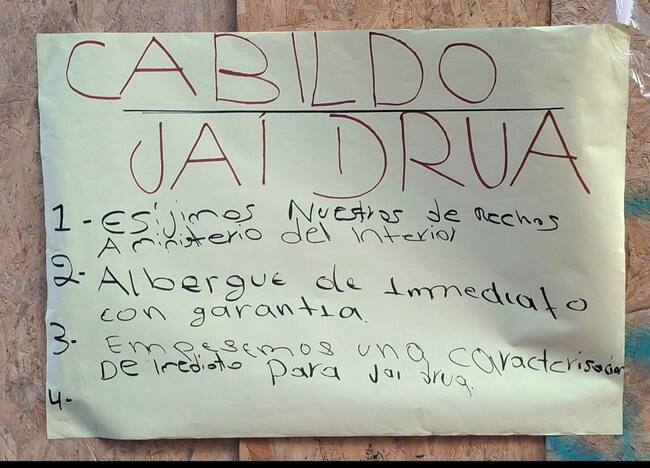 CABILDO
JAI DRUA
1- Esijimos Nuestros de rechos
A ministerio del Interior
2- Albergue de Immediato
con garantia.
3- Empesemos una caracterisacion
De imediato para Jai drua.
4-